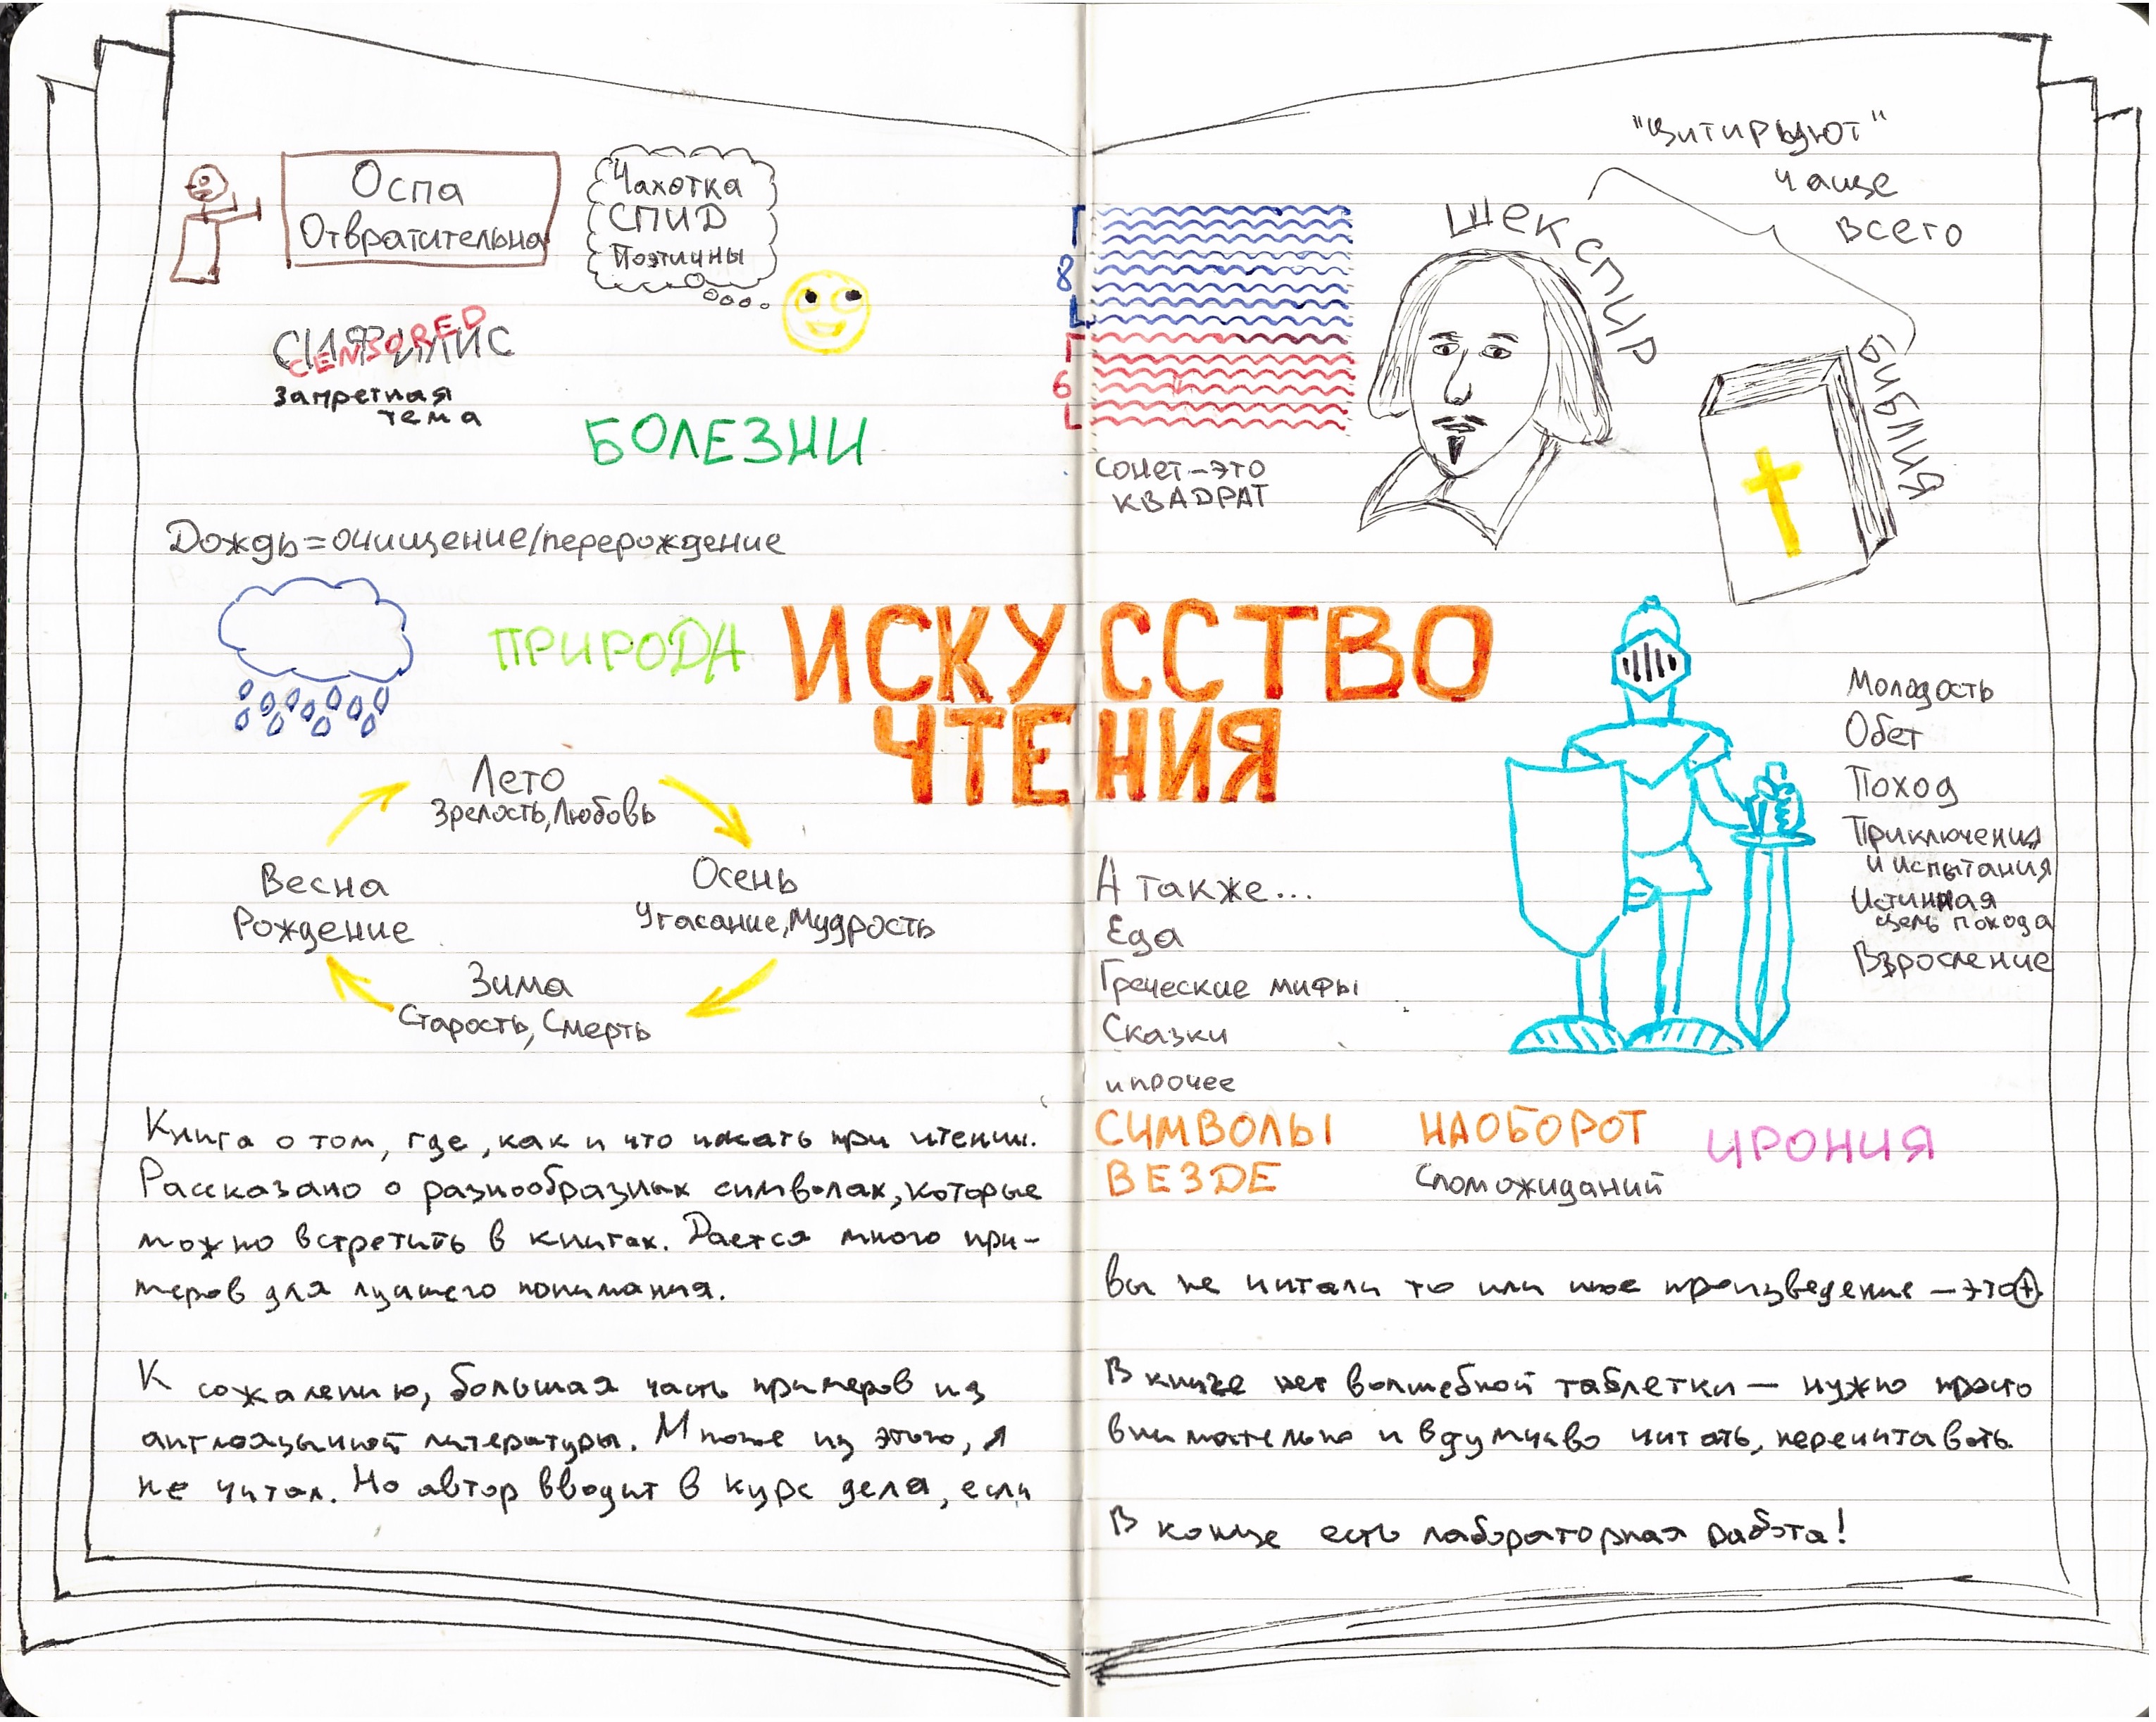 Оспа
Отвратительна
Чахотка
СПИД
Поэтичны
СИФИЛИС
CENSORED
Запретная
тема
БОЛЕЗНИ
Дождь=очищение/перерождение
ПРИРОДА
Лето
Зрелость, Любовь
Весна
Рождение
Осень
Угасание, Мудрость
Зима
Старость, Смерть
ИСКУССТВО
ЧТЕНИЯ
"Цитируют"
чаще
всего
ШЕКСПИР
БИБЛИЯ
8
6
Сонет-это
КВАДРАТ
Молодость
Обет
Поход
Приключения
и испытания
Истинная
цель похода
Взросление
А также...
Еда
Греческие мифы
Сказки
и прочее
СИМВОЛЫ
ВЕЗДЕ
НАОБОРОТ
Слом ожиданий
ИРОНИЯ
Книга о том, где, как и что искать при чтении.
Рассказано о разнообразных символах, которые
можно встретить в книгах. Дается много при-
меров для лучшего понимания.
К сожалению, большая часть примеров из
англоязычной литературы. Многое из этого, я
не читал. Но автор вводит в курс дела, если
вы не читали то или иное произведение - это +
В книге нет волшебной таблетки - нужно просто
внимательно и вдумчиво читать, перечитывать.
В конце есть лабораторная работа!